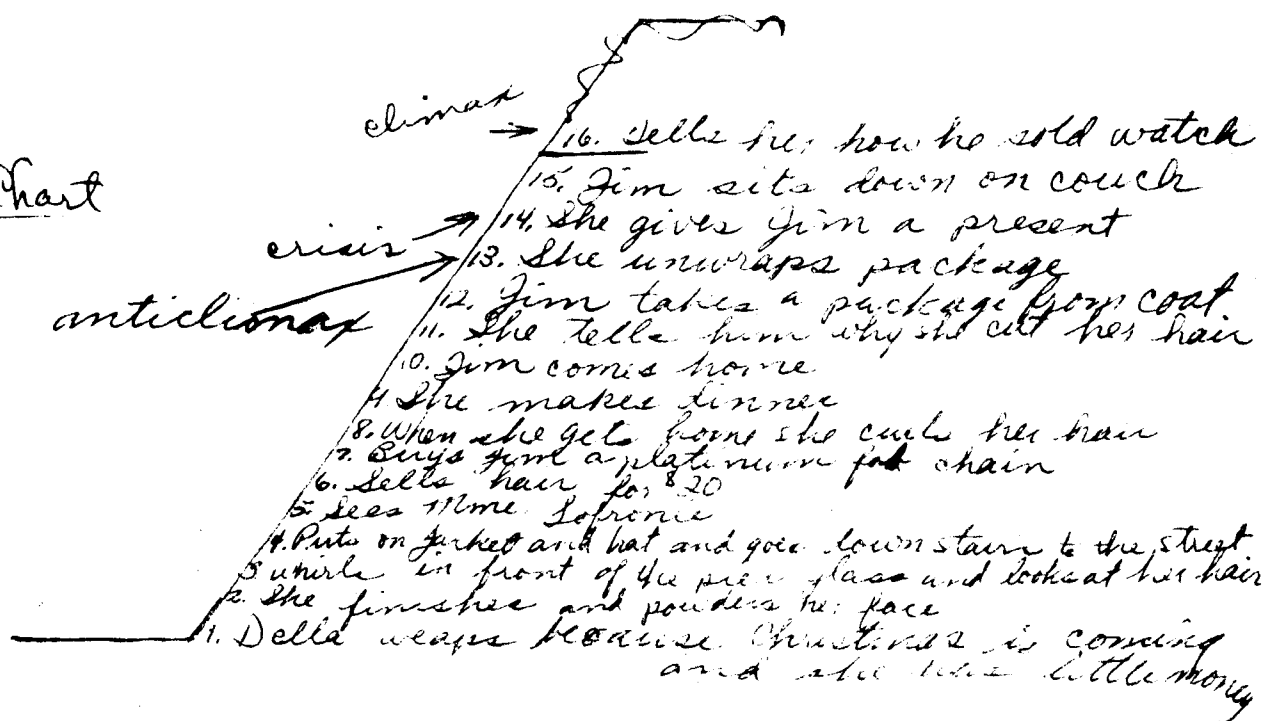 climax
16. Tells her how he sold watch
15. Jim sits down on couch
Chart
14. She gives Jim a present
crisis
13. She unwraps package
anticlimax
12. Jim takes a package from coat
11. She tells him why she cut her hair
10. Jim comes home
9. She makes dinner
8. When she gets home she curls her hair
7. Buys Jim a platinum fob chain
6. Sells hair for $20
5. Sees Mme. Sofronie
4. Puts on jacket and hat and goes down stairs to the street
3 whirls in front of the pier glass and looks at her hair
2. She finishes and powders her face
1. Della weaps because Christmas is coming
and she has little money